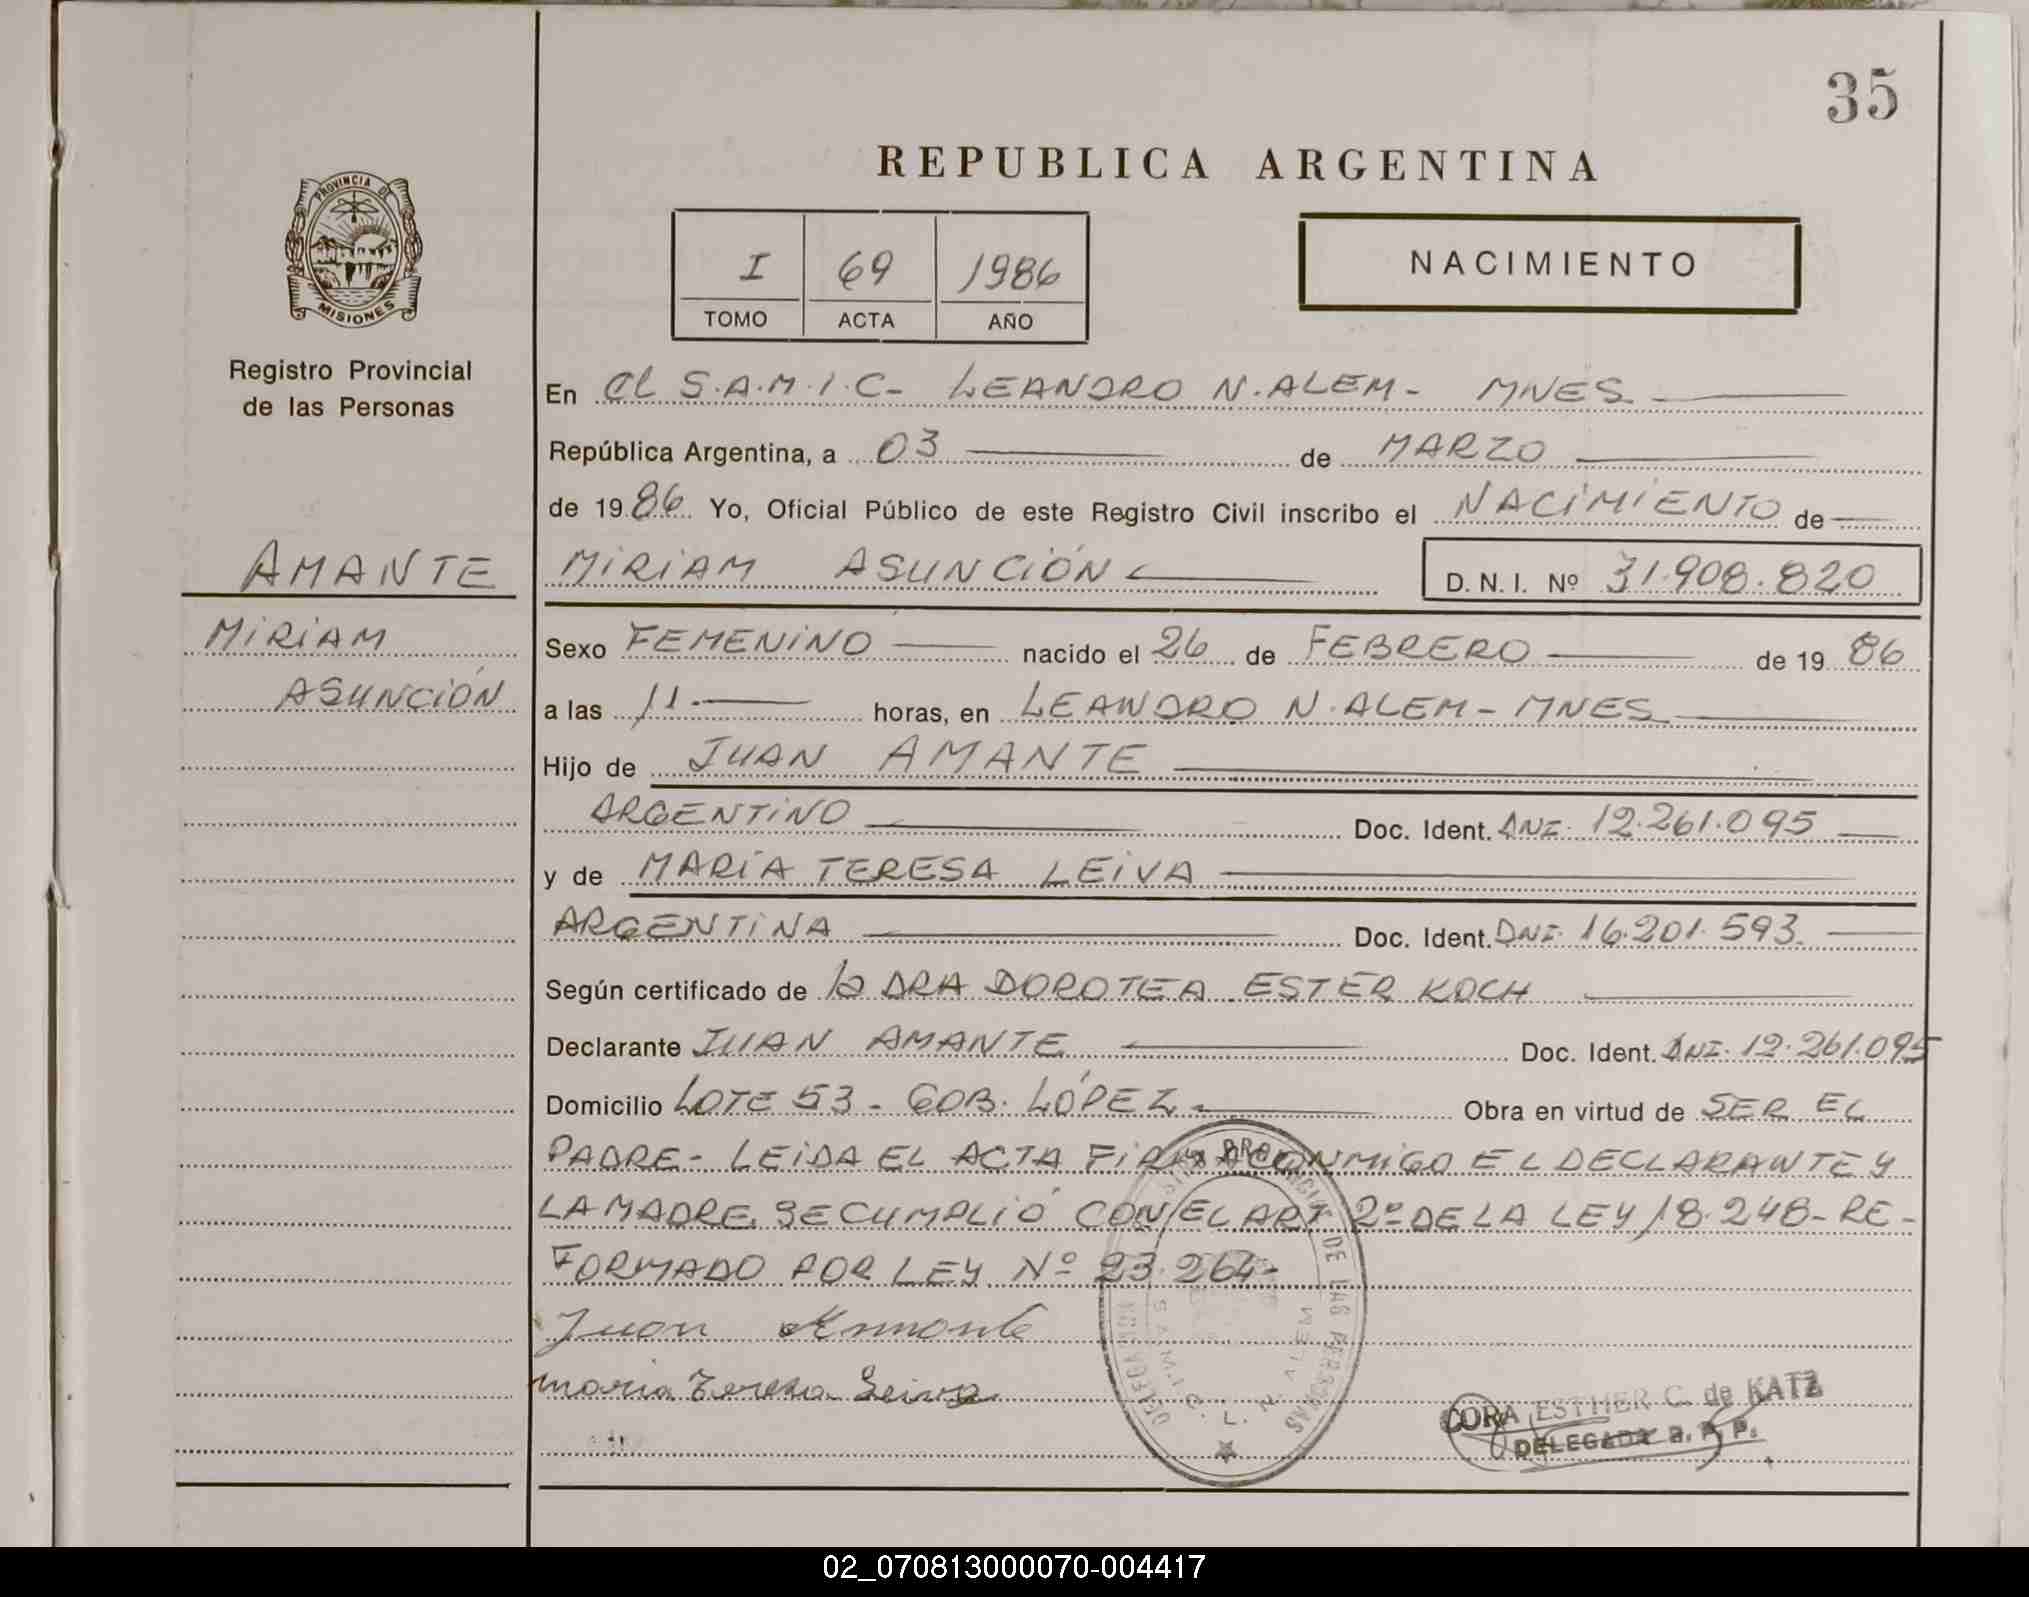 35
REPUBLICA ARGENTINA
PROVINCIA DE
MISIONES
Registro Provincial
de las Personas
I 69 1986
TOMO ACTA AÑO
NACIMIENTO
En el S.A.M.I.C- LEANDRO N. ALEM- MNES
República Argentina, a 03 de MARZO
de 1986 Yo, Oficial Público de este Registro Civil inscribo el NACIMIENTO de
AMANTE
MIRIAM
ASUNCIÓN
MIRIAM ASUNCIÓN D. N. I. Nº 31.908.820
Sexo FEMENINO nacido el 26 de FEBRERO de 1986
a las 11.- horas, en LEANDRO N. ALEM - MNES
Hijo de JUAN AMANTE
ARGENTINO Doc. Ident. DNI. 12.261.095
y de MARÍA TERESA LEIVA
ARGENTINA Doc. Ident. DNI. 16.201.593.
Según certificado de la DRA DOROTEA ESTER KOCH
Declarante JUAN AMANTE Doc. Ident. DNI. 12.261.095
Domicilio LOTE 53 - GOB. LÓPEZ.- Obra en virtud de SER EL
PADRE- LEIDA EL ACTA FIRMA CONMIGO EL DECLARANTE Y
LA MADRE. SE CUMPLIÓ CON EL ART 2º DE LA LEY 18.248- RE-
FORMADO POR LEY Nº 23.264-
Juan Amante
maria Teresa Leiva
CORA ESTHER C. de KATZ
DELEGADA R. P. P.
DE LAS PERSONAS
L. N. ALEM
02_070813000070-004417